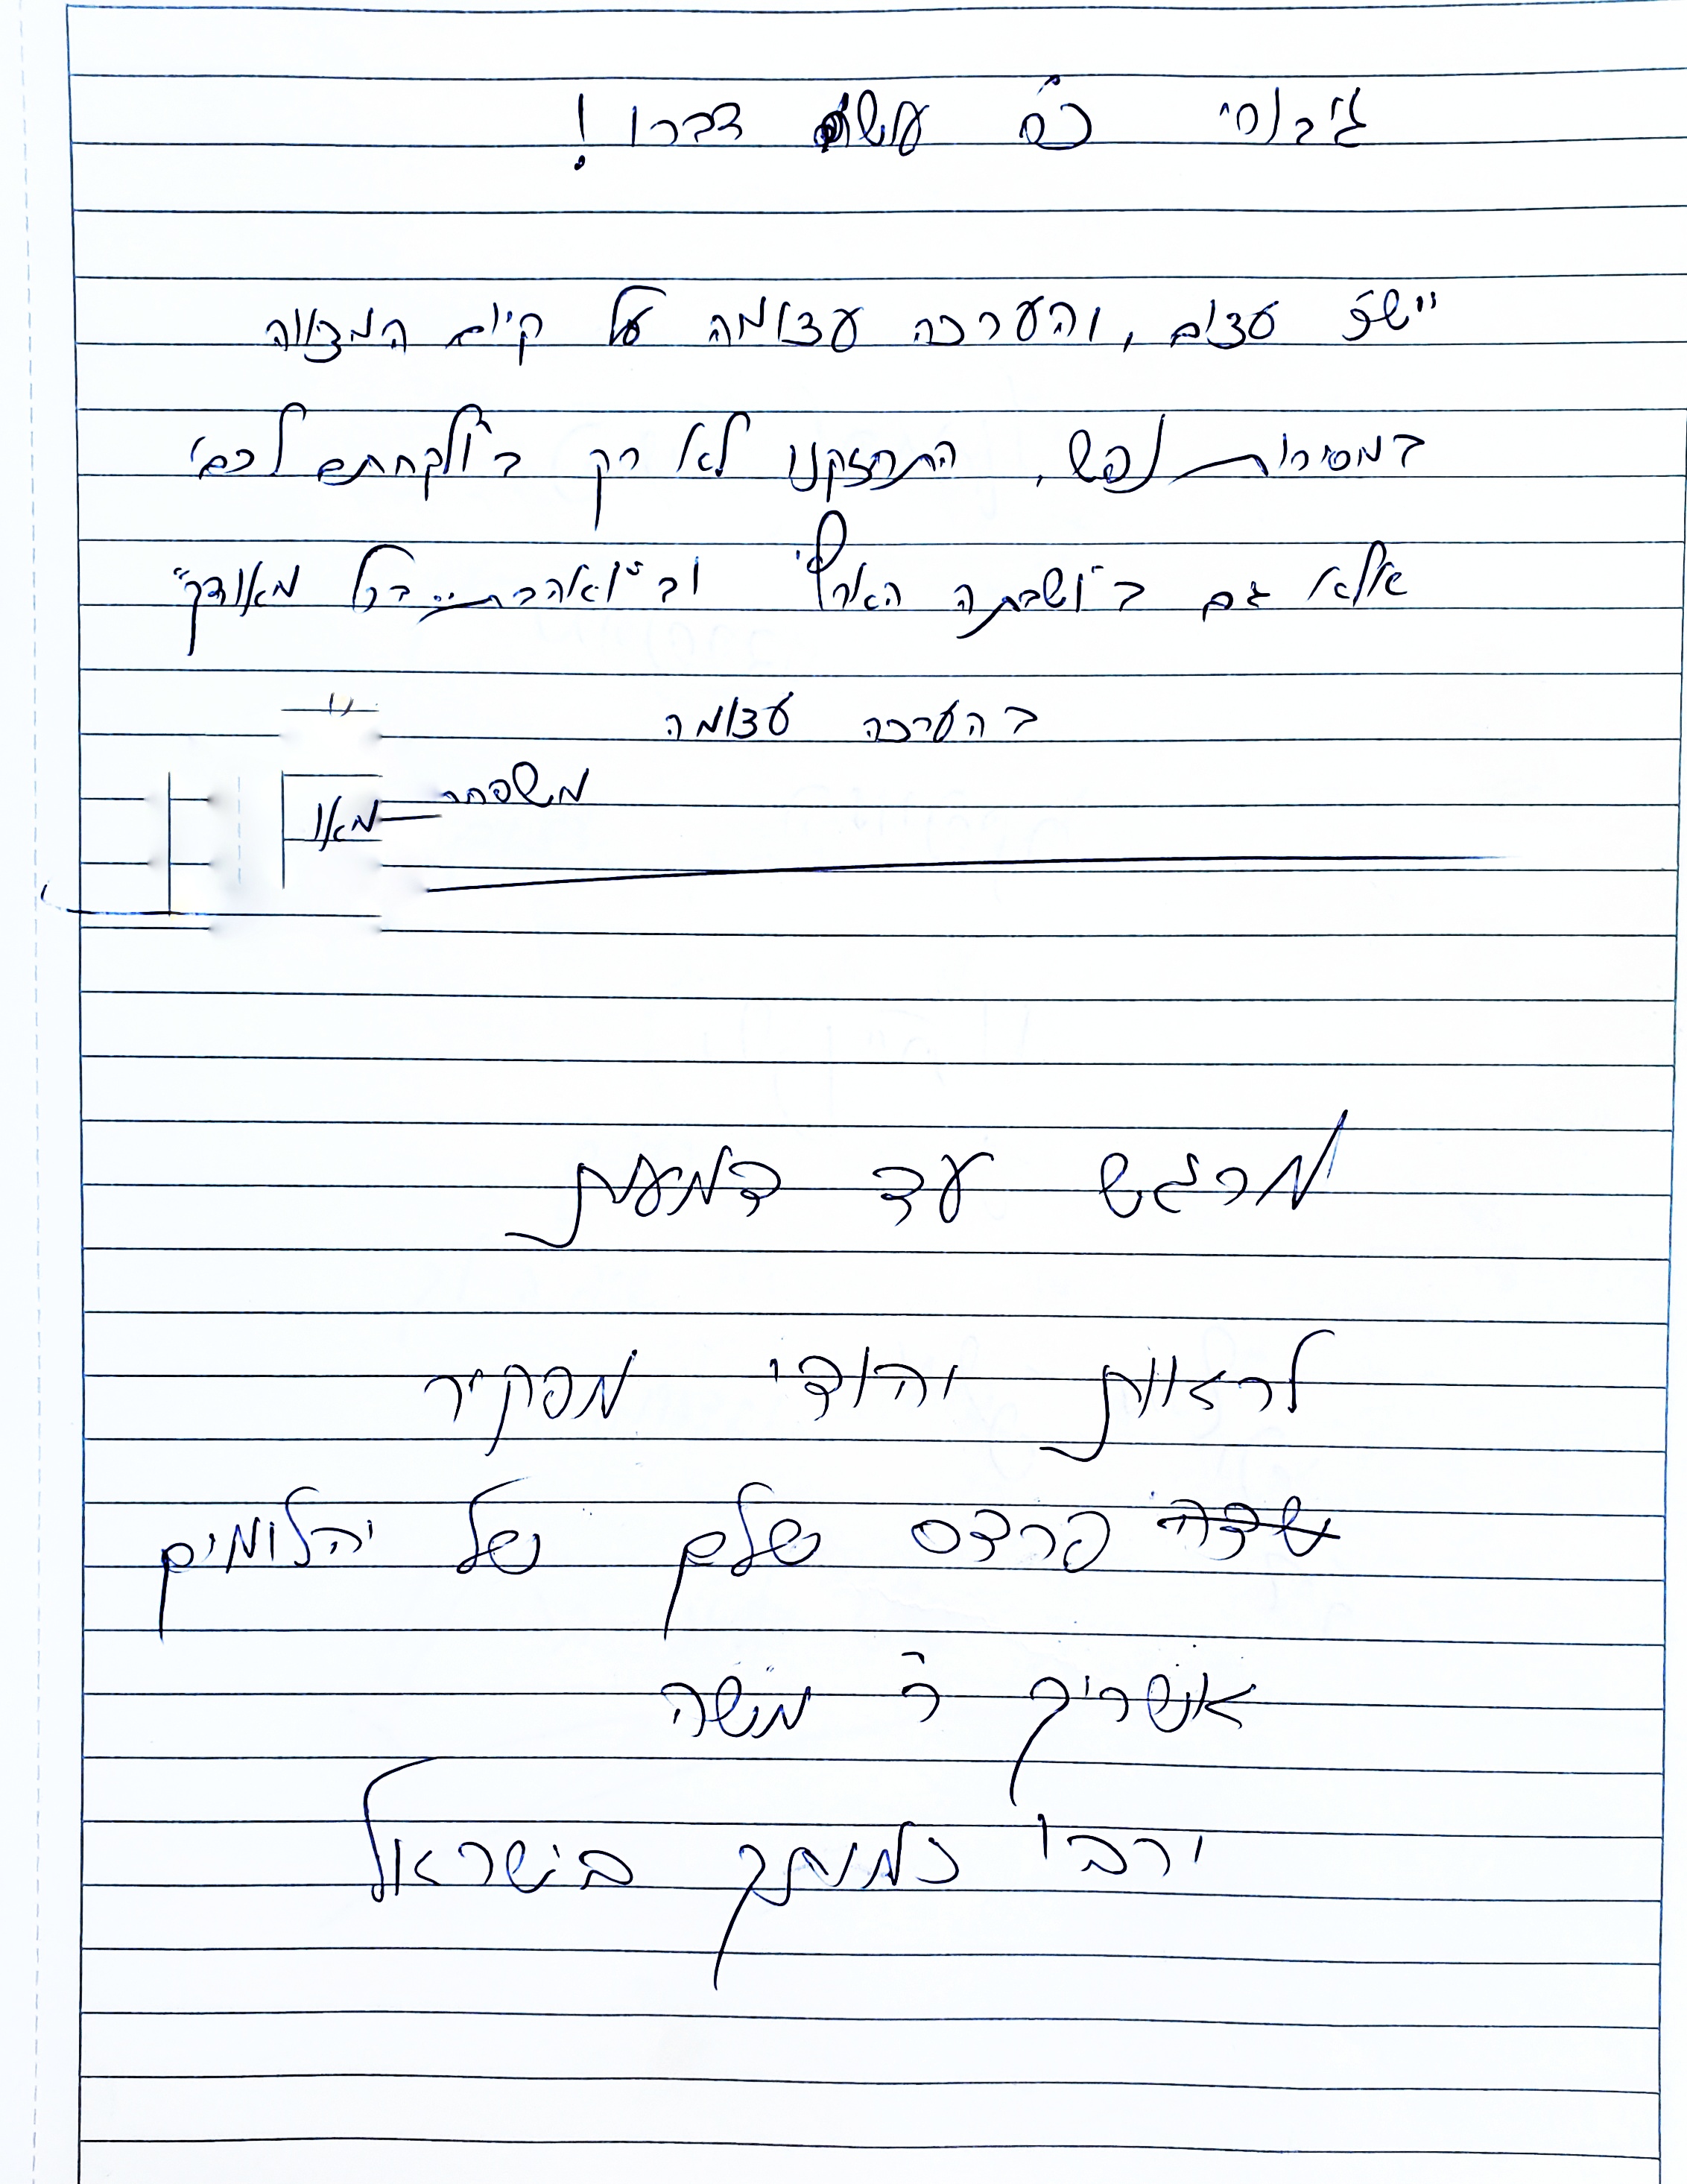 גיבורי כח עושי דברו!
יישר עצום, והערכה עצומה על קיום המצווה
במסירות נפש, התחזקנו לא רק ב"ולקחתם לכם"
אלא גם ב"ושבתה הארץ" וב"ואהבת... בכל מאודך"
בהערכה עצומה
משפחת
מרגש עד דמעות
לראות יהודי מפקיר
שדה פרדס שלם של יהלומים
אשריך ר' משה
ירבו כמותך בישראל